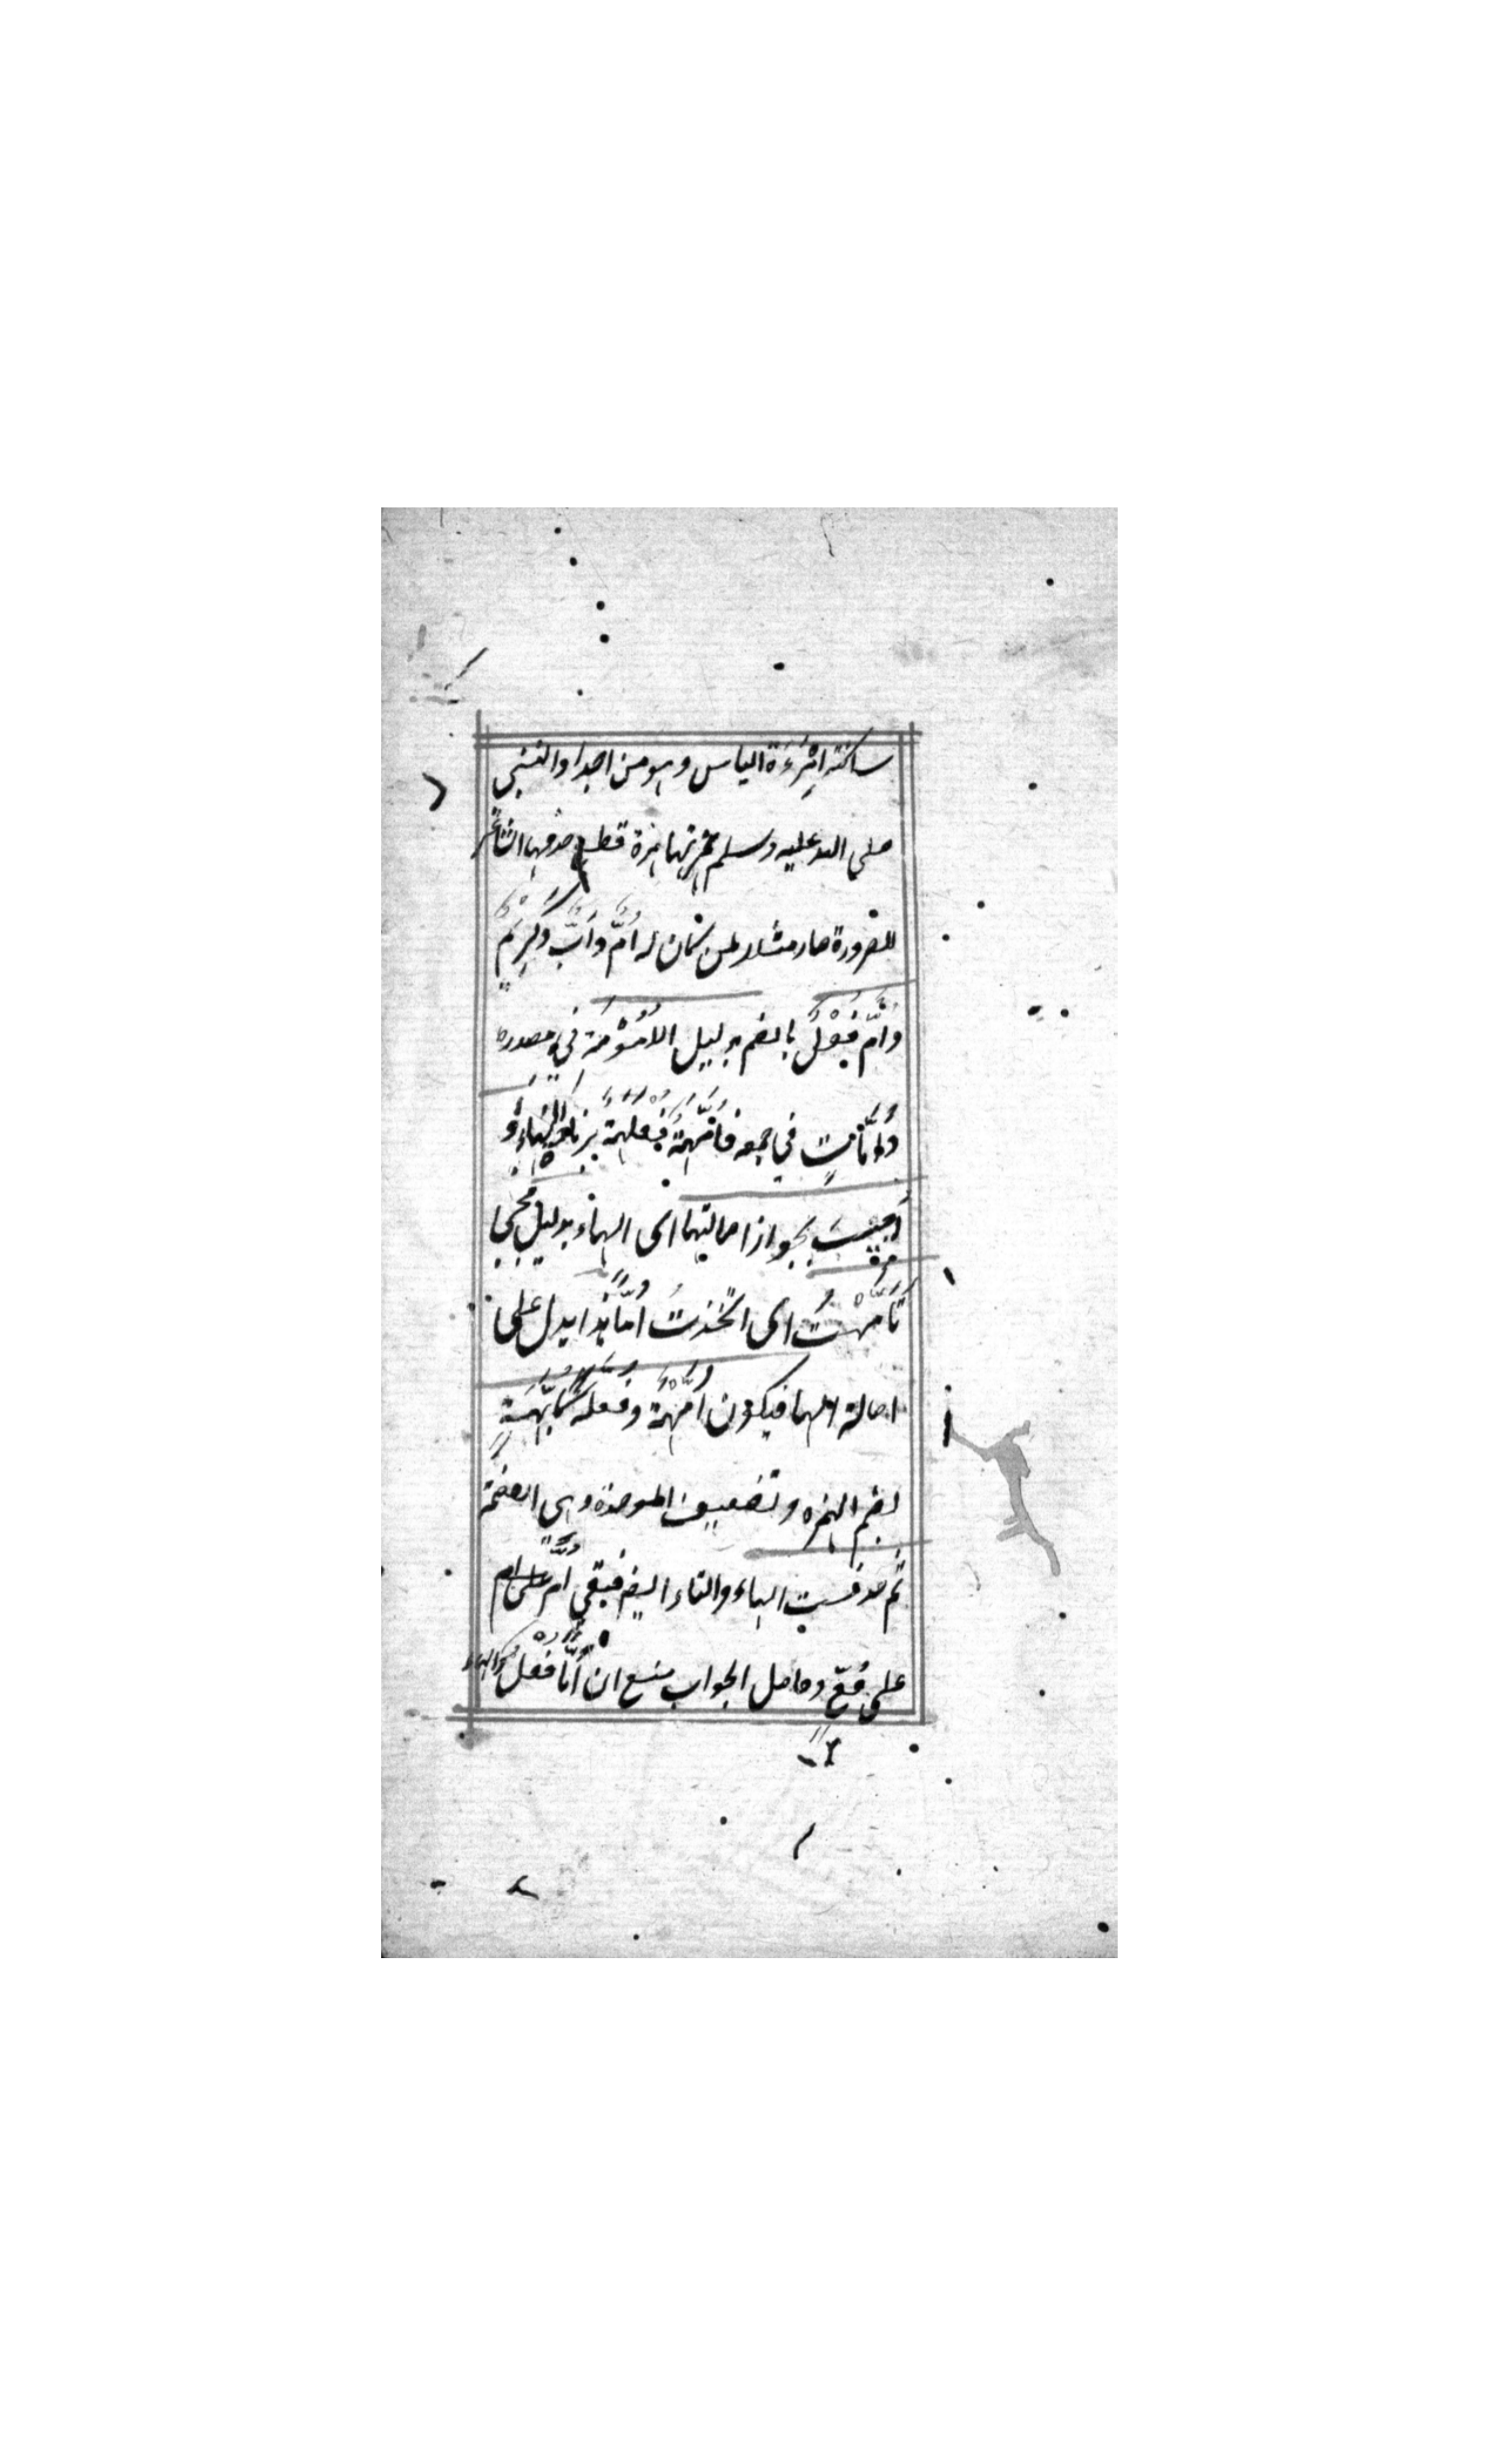 ساكنة امْرَءَة الياس وهو من اجداد النبي
صلى الله عليه وسلم همزتها همزة قطع حذفها الشاعر
للضرورة صار مثلا لمن كان له اُمٌّ وَاَبٌ كَرِيْمٌ
وَاُمٌّ فُعْلٌ بالضم بدليل الاُمُوْمَة في مصدره
وَاُمَّاتٍ في جمعه فَاُمَّهَةٌ فُعْلَهَةٌ بزيادة الهاء وَ
اُجِيْبَ بجواز اصالتها اى الهاء بدليل مجئ
تَأَمَّهْتُ اى اتخذتُ اُمًّا هذا يدل على
اصالة الهاء فيكون اُمَّهَةٌ فُعَّلَةً كَاُبَّهَةٍ
بضم الهمزه وتضعيف الموحدة وهي العظمة
ثم حذفت الهاء والتاء ايضا فبقي اُمٌّ
على فُعٍّ وحاصل الجواب منع ان اُمًّا فُعْلٌ والهاء